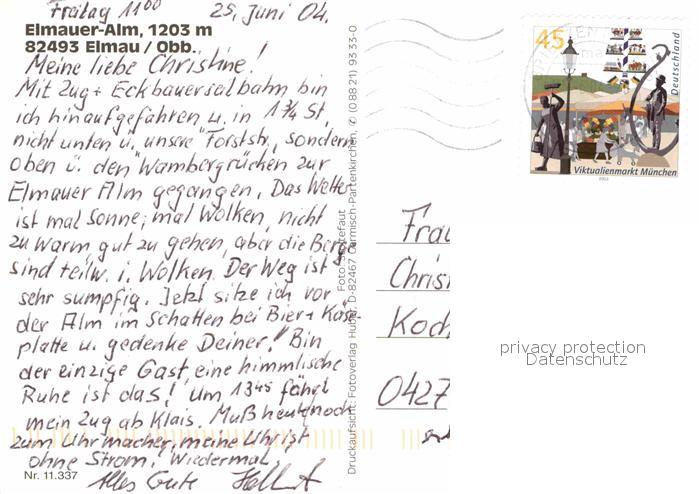 Freitag 11⁰⁰ 25. Juni 04.
Elmauer-Alm, 1203 m
82493 Elmau / Obb.
Meine liebe Christine!
Mit Zug + Eckbauerseilbahn bin
ich hinaufgefahren u. in 1 3/4 St.
nicht unten ü. unsere "Forststr., sondern
oben ü. den "Wambergrücken zur
Elmauer Alm gegangen. Das Wetter
ist mal Sonne, mal Wolken, nicht
zu warm gut zu gehen, aber die Berge
sind teilw. i. Wolken. Der Weg ist
sehr sumpfig. Jetzt sitze ich vor
der Alm im Schatten bei Bier + Käse-
platte u. gedenke Deiner! Bin
der einzige Gast, eine himmlische
Ruhe ist das! Um 13⁴⁵ fährt
mein Zug ab Klais. Muß heut noch
zum Uhrmacher, meine Uhr ist
ohne Strom. Wiedermal.
Alles Gute
Nr. 11.337
Druckaufsicht: Fotoverlag Huber, D-82467 Garmisch-Partenkirchen, ✆ (0 88 21) 93 33-0
45
Deutschland
Viktualienmarkt München
2003
Frau
Chris
Koch
0427
privacy protection
Datenschutz